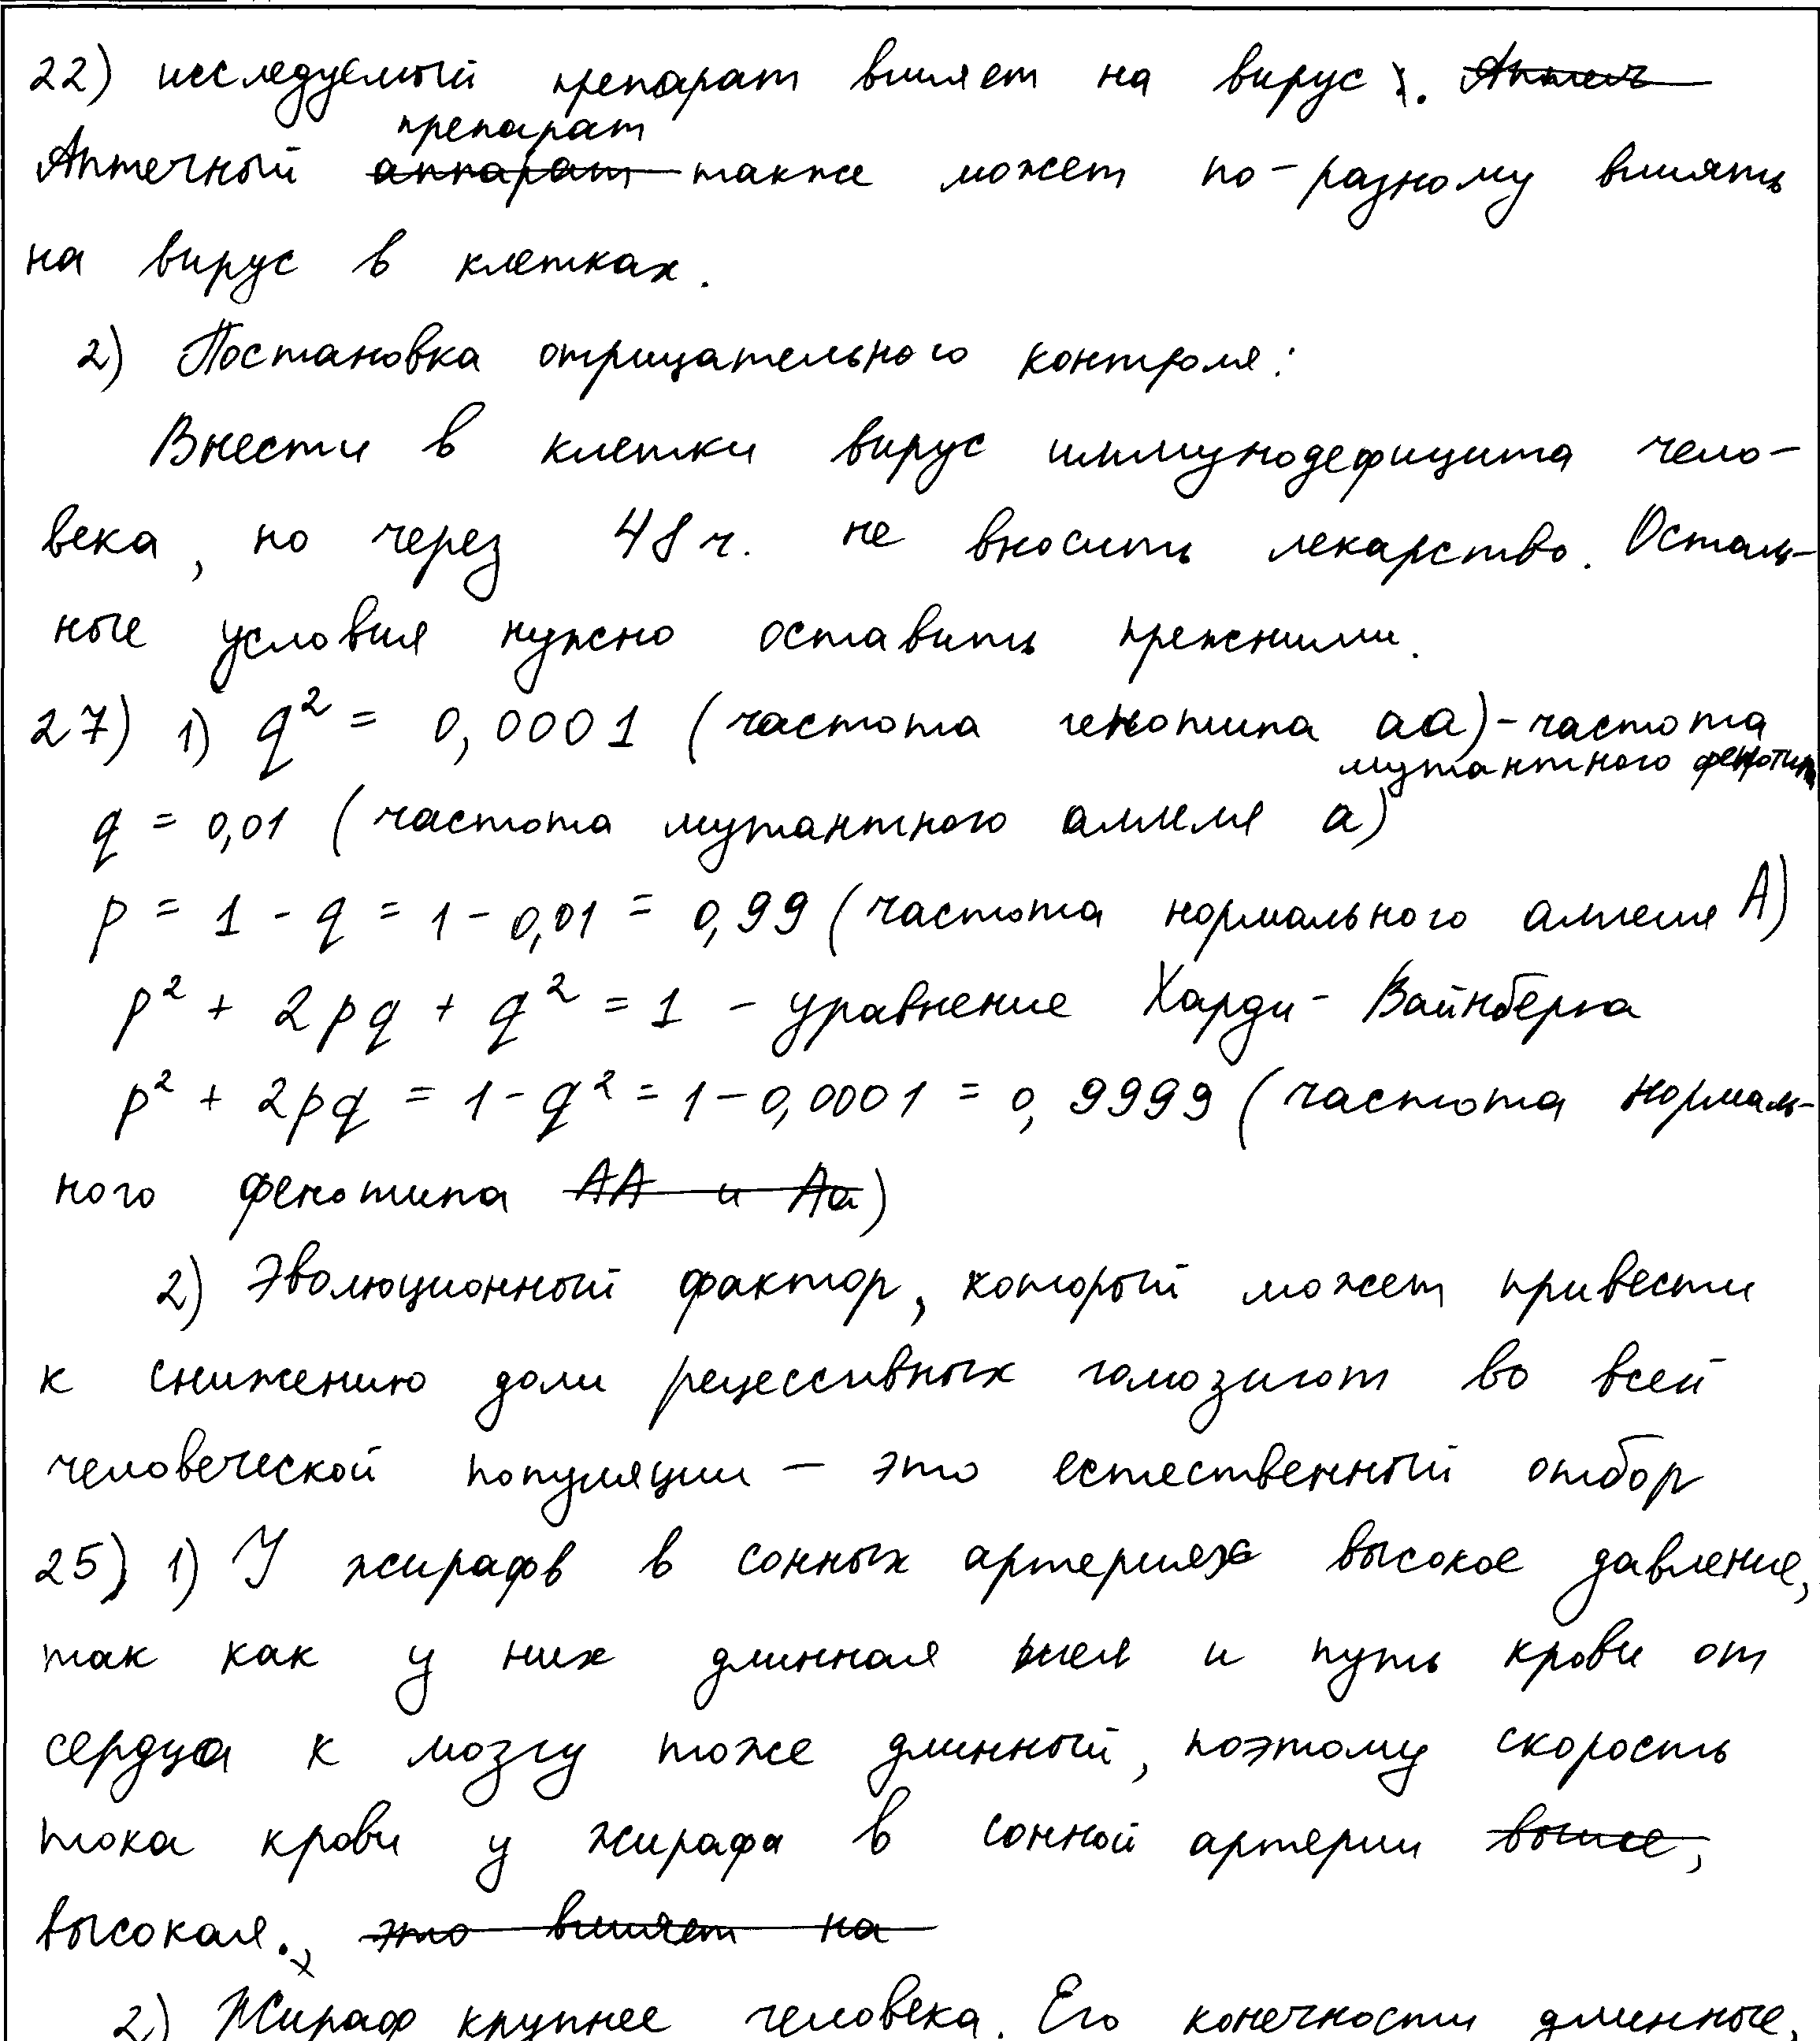 22) исследуемый препарат влияет на вирус. Аптеч
препарат
Аптечный аппарат также может по-разному влиять
на вирус в клетках.
2) Постановка отрицательного контроля:
Внести в клетки вирус иммунодефицита чело-
века, но через 48 ч. не вносить лекарство. Осталь-
ные условия нужно оставить прежними.
27) 1) q² = 0,0001 (частота генотипа аа) - частота
мутантного фенотипа
q = 0,01 (частота мутантного аллеля а)
p = 1 - q = 1 - 0,01 = 0,99 (частота нормального аллеля А)
p² + 2pq + q² = 1 - уравнение Харди - Вайнберга
p² + 2pq = 1 - q² = 1 - 0,0001 = 0,9999 (частота нормаль-
ного фенотипа АА и Аа)
2) Эволюционный фактор, который может привести
к снижению доли рецессивных гомозигот во всей
человеческой популяции - это естественный отбор
25) 1) У жирафв в сонных артериях высокое давление,
так как у них длинная шея и путь крови от
сердца к мозгу тоже длинный, поэтому скорость
тока крови у жирафа в сонной артерии выше,
высокая. это влияет на
2) Жираф крупнее человека. Его конечности длинные,